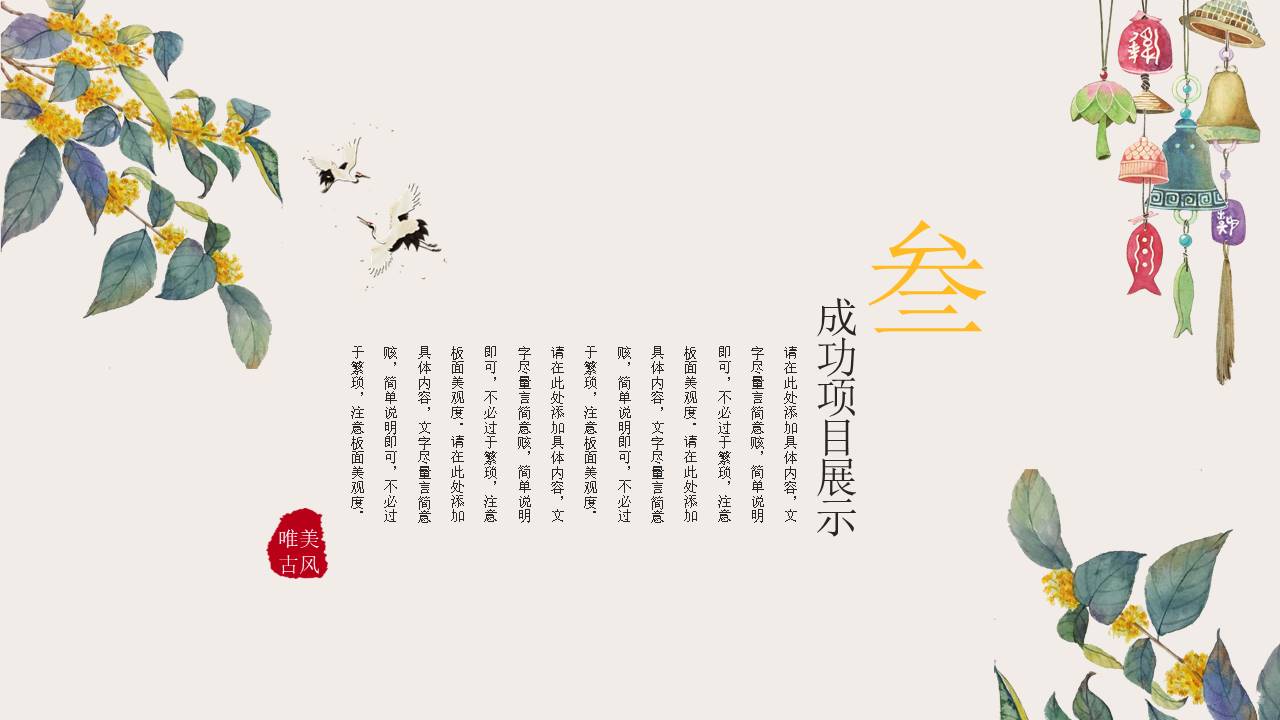 叁
成功项目展示
请在此处添加具体内容，文
字尽量言简意赅，简单说明
即可，不必过于繁琐，注意
板面美观度。请在此处添加
具体内容，文字尽量言简意
赅，简单说明即可，不必过
于繁琐，注意板面美观度。
请在此处添加具体内容，文
字尽量言简意赅，简单说明
即可，不必过于繁琐，注意
板面美观度。请在此处添加
具体内容，文字尽量言简意
赅，简单说明即可，不必过
于繁琐，注意板面美观度。
唯美
古风